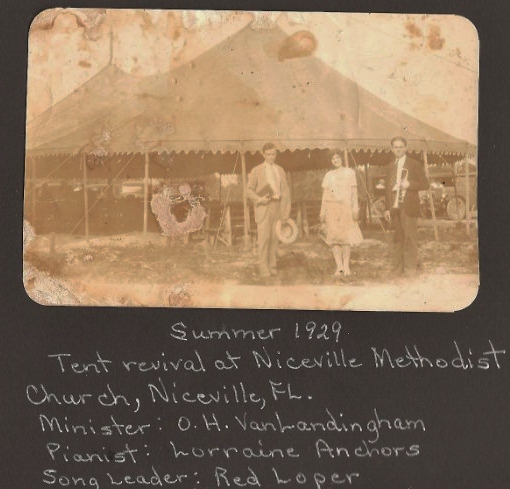 Summer 1929
Tent revival at Niceville Methodist
Church, Niceville, FL.
Minister: O.H. VanLandingham
Pianist: Lorraine Anchors
Song Leader: Red Loper